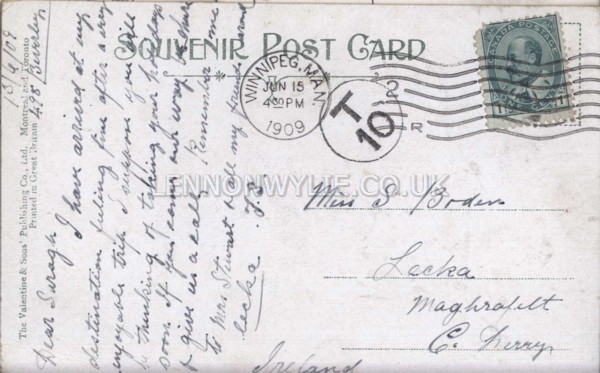 SOUVENIR POST CARD
The Valentine & Sons' Publishing Co., Ltd. Montreal and Toronto
Printed in Great Britain
15/6/09
495 Beverley
Dear Saragh
I have arrived at my
destination feeling fine after a very
enjoyable trip. I suppose you will
be thinking of taking your holidays
soon. If you come our way be sure
& give us a call. Remember me
to Mrs Stewart & all my friends round
Lecka. J.S.
WINNIPEG, MAN.
JUN 15
4 PM
1909
T
10
2
R
CANADA POSTAGE
1 1
LENNONWYLIE.CO.UK
Miss S. Boden
Lecka
Maghrafelt
C. Derry
Ireland